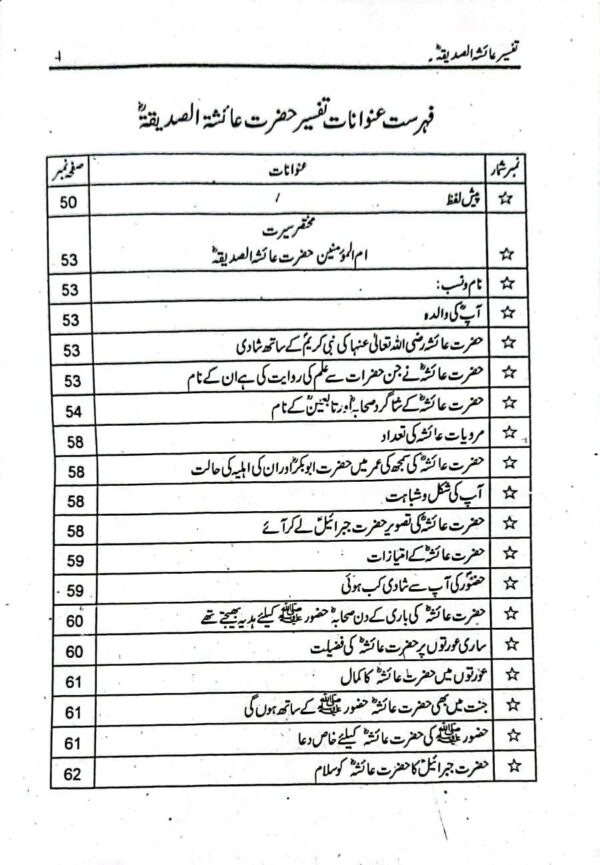 تفسیر عائشۃ الصدیقہؓ
4
فہرست عنوانات تفسیر حضرت عائشۃ الصدیقۃؓ
نمبر شمار عنوانات صفحہ نمبر
☆ پیش لفظ 50
مختصر سیرت
☆ ام المؤمنین حضرت عائشۃ الصدیقہؓ 53
☆ نام و نسب: 53
☆ آپؓ کی والدہ 53
☆ حضرت عائشہ رضی اللہ تعالیٰ عنہا کی نبی کریمؐ کے ساتھ شادی 53
☆ حضرت عائشہؓ نے جن حضرات سے علم کی روایت کی ہے ان کے نام 53
☆ حضرت عائشہؓ کے شاگرد صحابہؓ اور تابعینؒ کے نام 54
☆ مرویات عائشہ کی تعداد 58
☆ حضرت عائشہؓ کی سمجھ کی عمر میں حضرت ابوبکرؓ اور ان کی اہلیہ کی حالت 58
☆ آپ کی شکل و شباہت 58
☆ حضرت عائشہؓ کی تصویر حضرت جبرائیلؑ لے کر آئے 58
☆ حضرت عائشہؓ کے امتیازات 59
☆ حضورؐ کی آپ سے شادی کب ہوئی 59
☆ حضرت عائشہؓ کی باری کے دن صحابہؓ حضور ﷺ کیلئے ہدیہ بھیجتے تھے 60
☆ ساری عورتوں پر حضرت عائشہؓ کی فضیلت 60
☆ عورتوں میں حضرت عائشہؓ کا کمال 61
☆ جنت میں بھی حضرت عائشہؓ حضور ﷺ کے ساتھ ہوں گی 61
☆ حضور ﷺ کی حضرت عائشہؓ کیلئے خاص دعا 61
☆ حضرت جبرائیلؑ کا حضرت عائشہؓ کو سلام 62